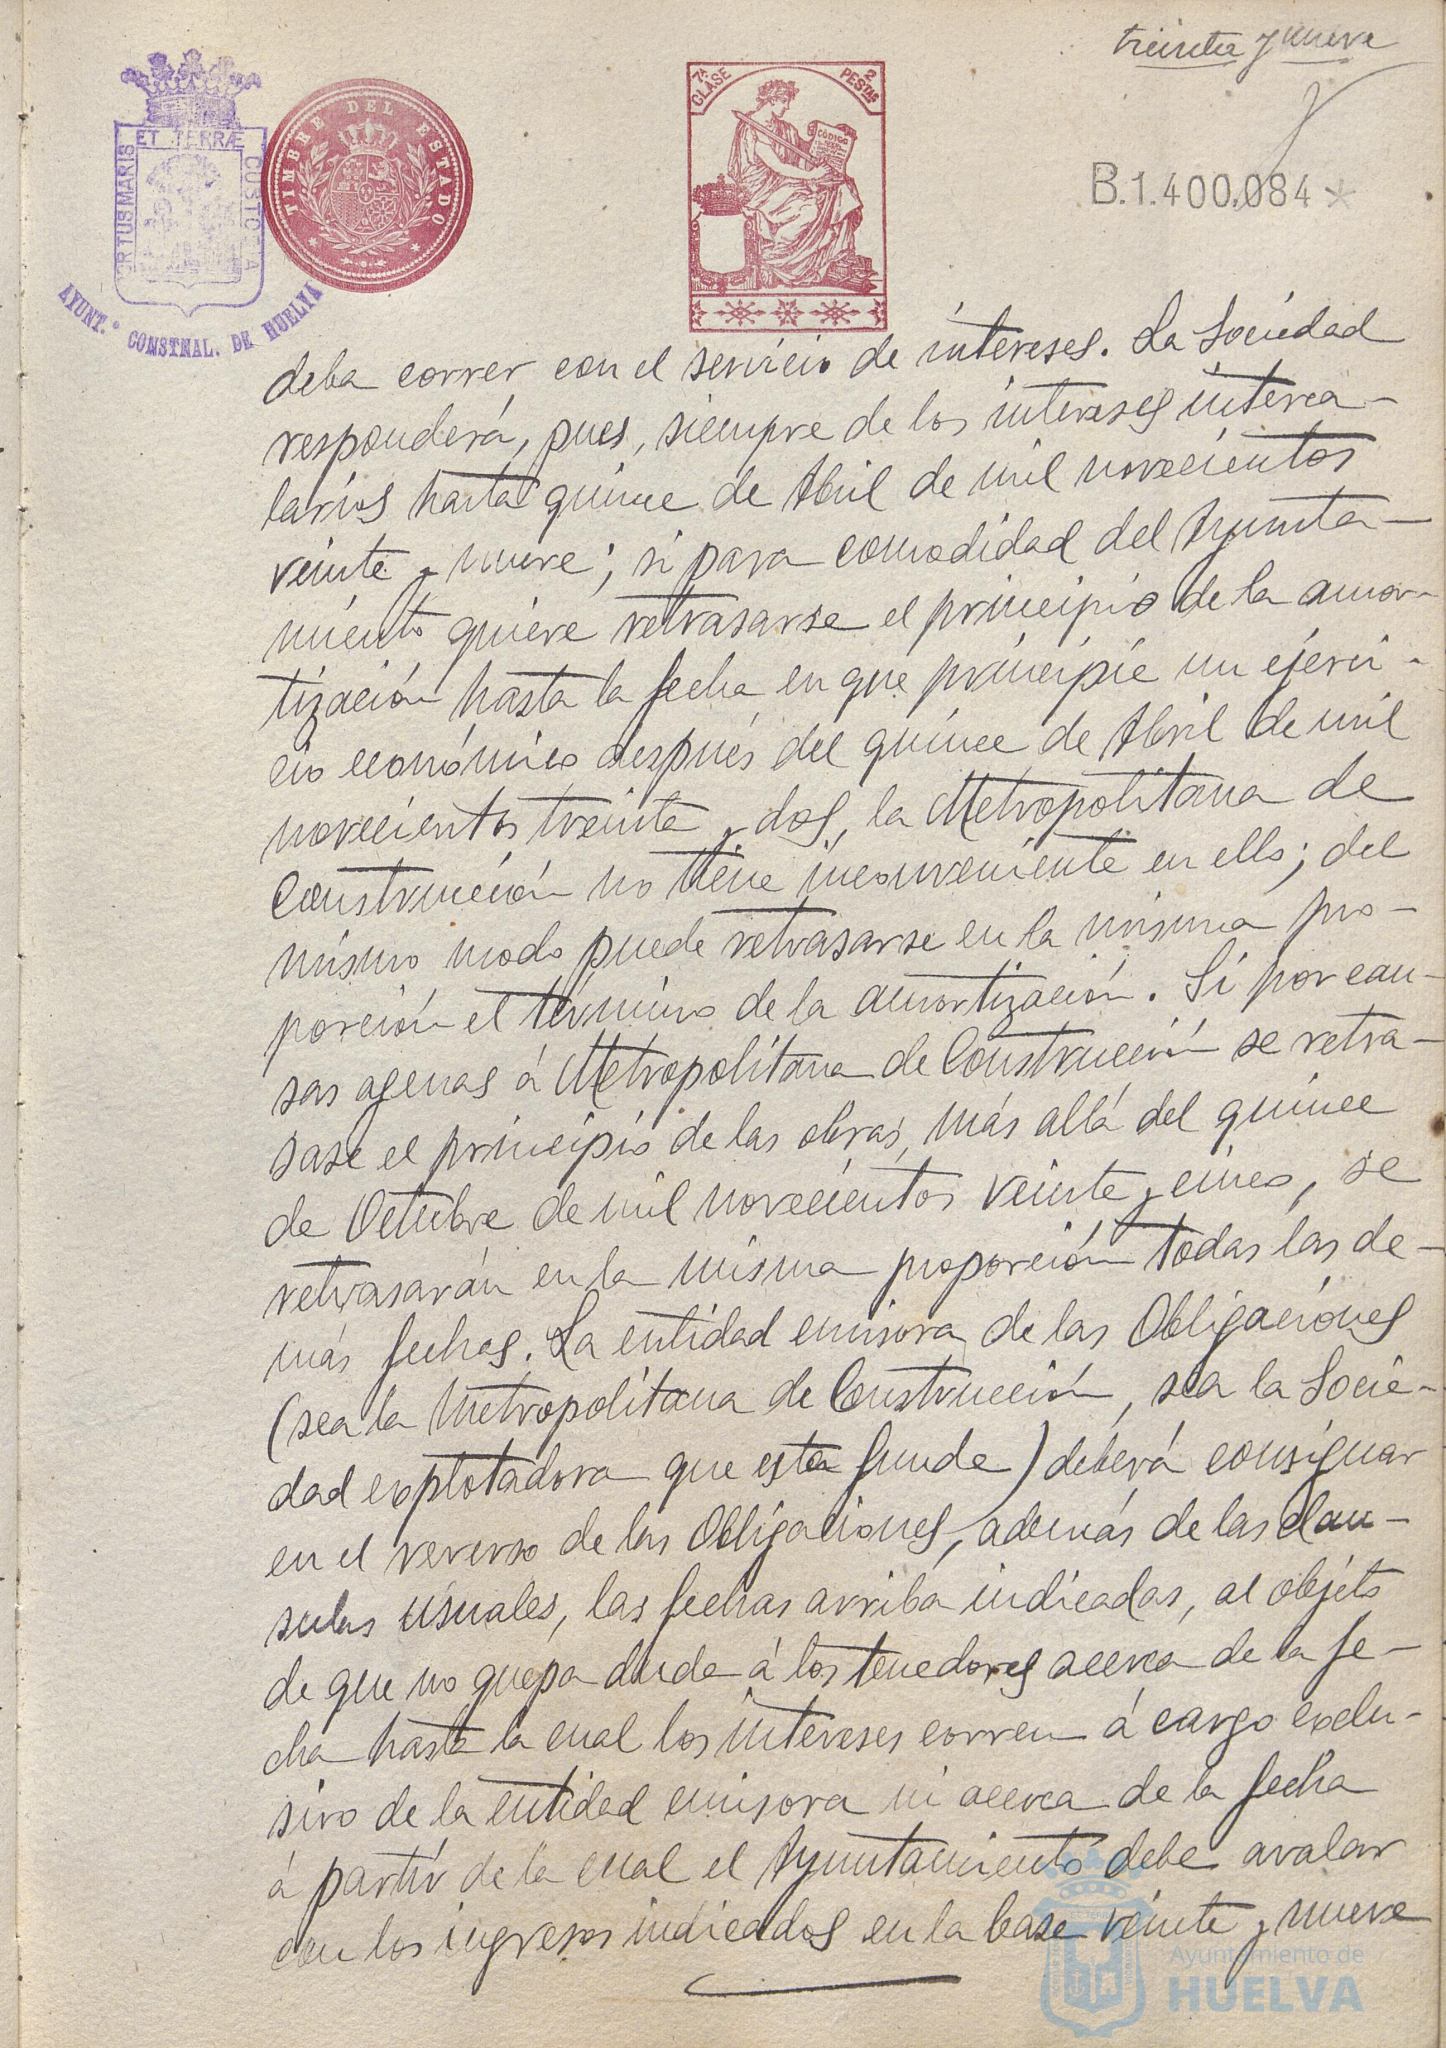 treinta y nueve
ET TERRÆ
ORTUS MARIS
CUSTODIA
AYUNT.º CONSTNAL. DE HUELVA
TIMBRE DEL ESTADO
7ª CLASE
2 PESTAS
CODIGO
B.1.400.084*
deba correr con el servicio de intereses. La Sociedad
responderá, pues, siempre de los intereses interca-
larios hasta quince de Abril de mil novecientos
veinte y nueve; si para comodidad del Ayunta-
miento quiere retrasarse el principio de la amor-
tización hasta la fecha en que principie un ejerci-
cio económico después del quince de Abril de mil
novecientos treinta y dos, la Metropolitana de
Construcción no tiene inconveniente en ello; del
mismo modo puede retrasarse en la misma pro-
porción el término de la amortización. Si por cau-
sas agenas á Metropolitana de Construcción se retra-
sase el principio de las obras, más allá del quince
de Octubre de mil novecientos veinte y cinco, se
retrasarán en la misma proporción todas las de-
más fechas. La entidad emisora de las Obligaciones
(sea la Metropolitana de Construcción, sea la Socie-
dad explotadora que esta funde) deberá consignar
en el reverso de las Obligaciones, además de las clau-
sulas usuales, las fechas arriba indicadas, al objeto
de que no quepa duda á los tenedores acerca de la fe-
cha hasta la cual los intereses corren á cargo exclu-
sivo de la entidad emisora ni acerca de la fecha
á partir de la cual el Ayuntamiento debe avalar
con los ingresos indicados en la base veinte y nueve
Ayuntamiento de
HUELVA